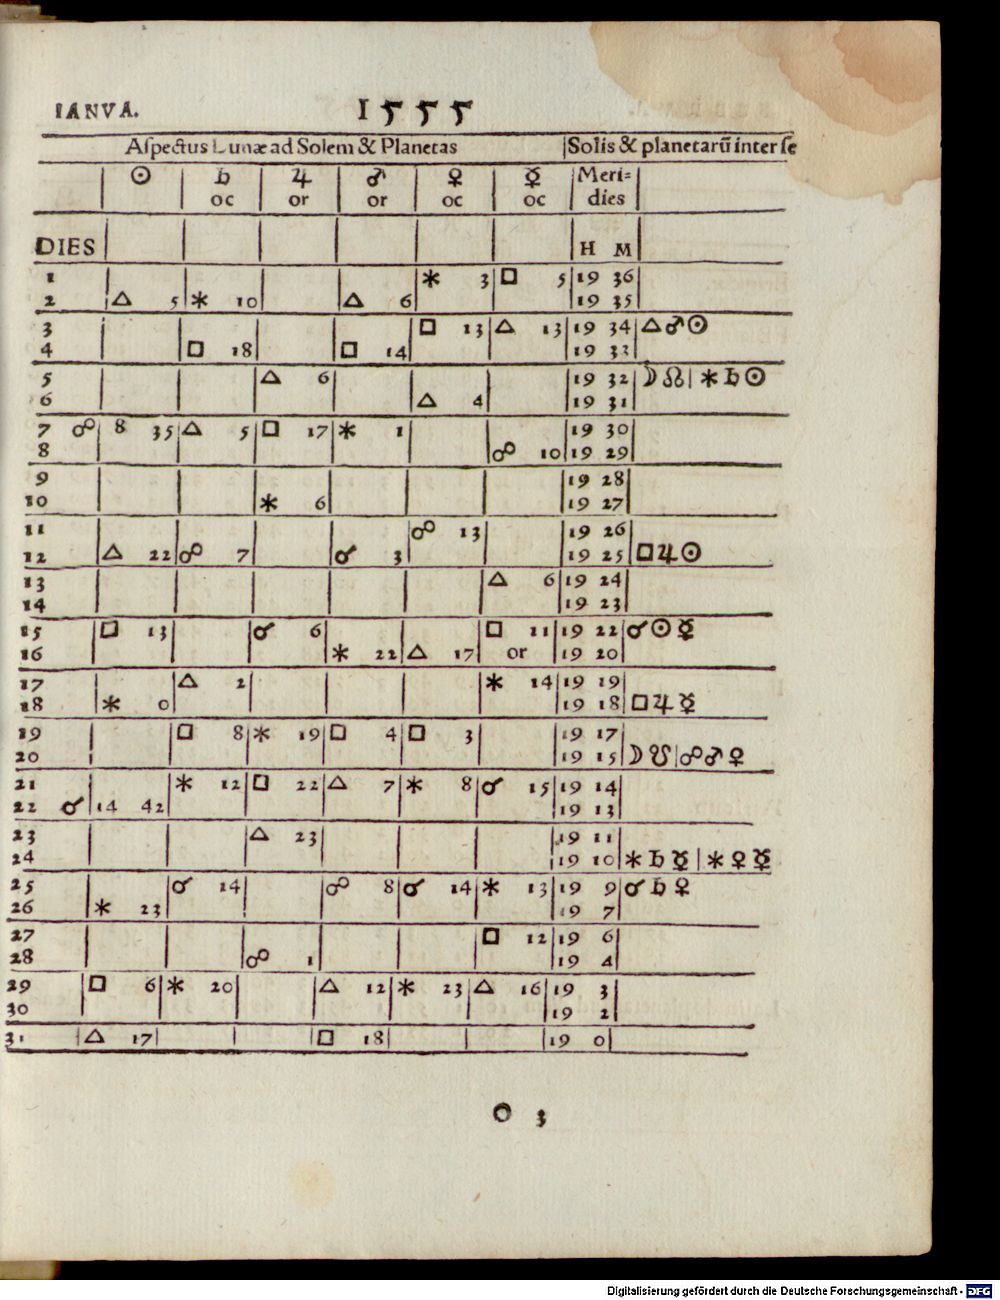 IANVA. 1555
Aſpectus Lunæ ad Solem & Planetas | Solis & planetarũ inter ſe
☉ | ♄ | ♃ | ♂ | ♀ | ☿ | Meri=
oc | or | or | oc | oc | dies
DIES H M
1 ⚹ 3 | □ 5 | 19 36
2 △ 5 | ⚹ 10 | △ 6 | 19 35
3 □ 13 | △ 13 | 19 34 | △♂☉
4 □ 18 | □ 14 | 19 33
5 △ 6 | 19 32 | ☽☊ | ⚹♄☉
6 △ 4 | 19 31
7 ☍ 8 35 | △ 5 | □ 17 | ⚹ 1 | 19 30
8 ☍ 10 | 19 29
9 19 28
10 ⚹ 6 | 19 27
11 ☍ 13 | 19 26
12 △ 22 | ☍ 7 | ☌ 3 | 19 25 | □♃☉
13 △ 6 | 19 24
14 19 23
15 □ 13 | ☌ 6 | □ 11 | 19 22 | ☌☉☿
16 ⚹ 22 | △ 17 | or | 19 20
17 △ 2 | ⚹ 14 | 19 19
18 ⚹ 0 | 19 18 | □♃☿
19 □ 8 | ⚹ 19 | □ 4 | □ 3 | 19 17
20 19 15 | ☽☋ | ☍♂♀
21 ⚹ 12 | □ 22 | △ 7 | ⚹ 8 | ☌ 15 | 19 14
22 ☌ 14 42 | 19 13
23 △ 23 | 19 11
24 19 10 | ⚹♄☿ | ⚹♀☿
25 ☌ 14 | ☍ 8 | ☌ 14 | ⚹ 13 | 19 9 | ☌♄♀
26 ⚹ 23 | 19 7
27 □ 12 | 19 6
28 ☍ 1 | 19 4
29 □ 6 | ⚹ 20 | △ 12 | ⚹ 23 | △ 16 | 19 3
30 19 2
31 △ 17 | □ 18 | 19 0
O 3
Digitalisierung gefördert durch die Deutsche Forschungsgemeinschaft - DFG